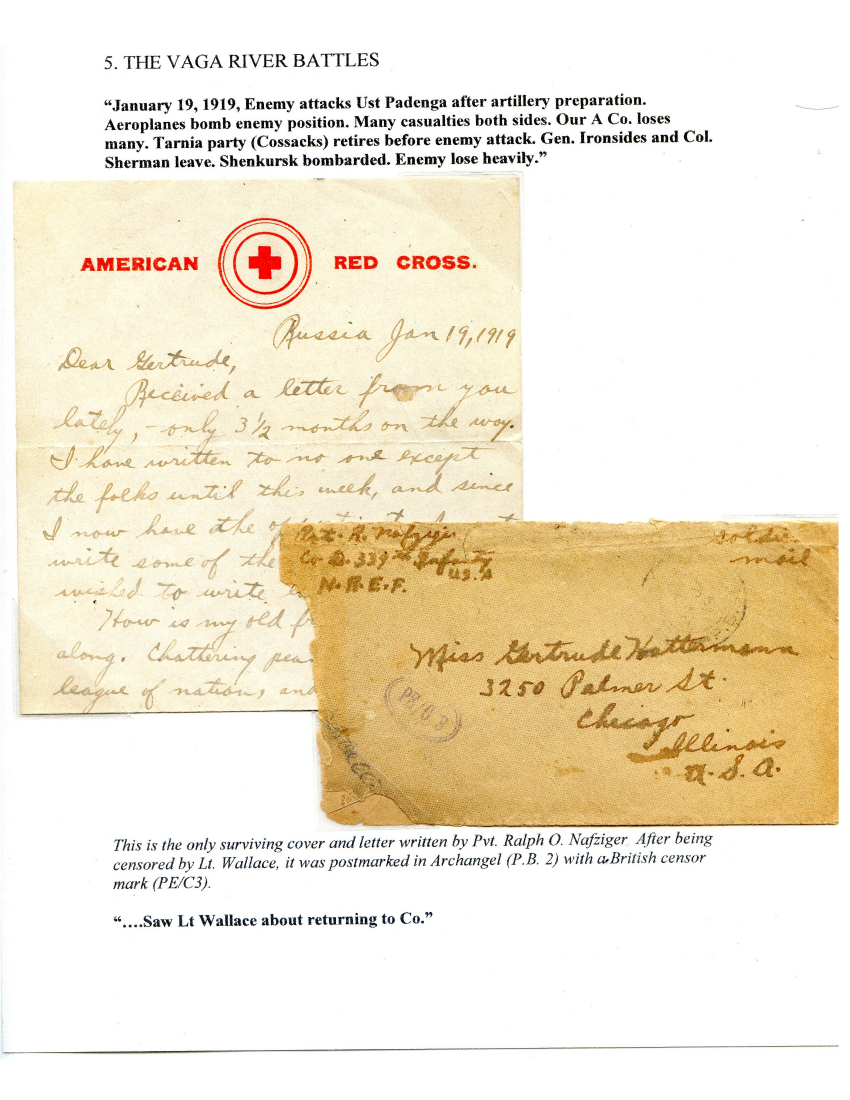 5. THE VAGA RIVER BATTLES
“January 19, 1919, Enemy attacks Ust Padenga after artillery preparation.
Aeroplanes bomb enemy position. Many casualties both sides. Our A Co. loses
many. Tarnia party (Cossacks) retires before enemy attack. Gen. Ironsides and Col.
Sherman leave. Shenkursk bombarded. Enemy lose heavily.”
AMERICAN RED CROSS.
Russia Jan 19, 1919
Dear Gertrude,
Received a letter from you
lately, - only 3 1/2 months on the way.
I have written to no one except
the folks until this week, and since
I now have the
write some of the
wished to write
How is my old
along. Chattering
league of nations, and
Pvt. R. Nafziger
Co D. 339th Infantry
U.S.A
N.R.E.F.
Soldier
mail
Miss Gertrude Hattermann
3250 Palmer St.
Chicago
Illinois
U.S.A.
This is the only surviving cover and letter written by Pvt. Ralph O. Nafziger. After being
censored by Lt. Wallace, it was postmarked in Archangel (P.B. 2) with a British censor
mark (PE/C3).
“….Saw Lt Wallace about returning to Co.”